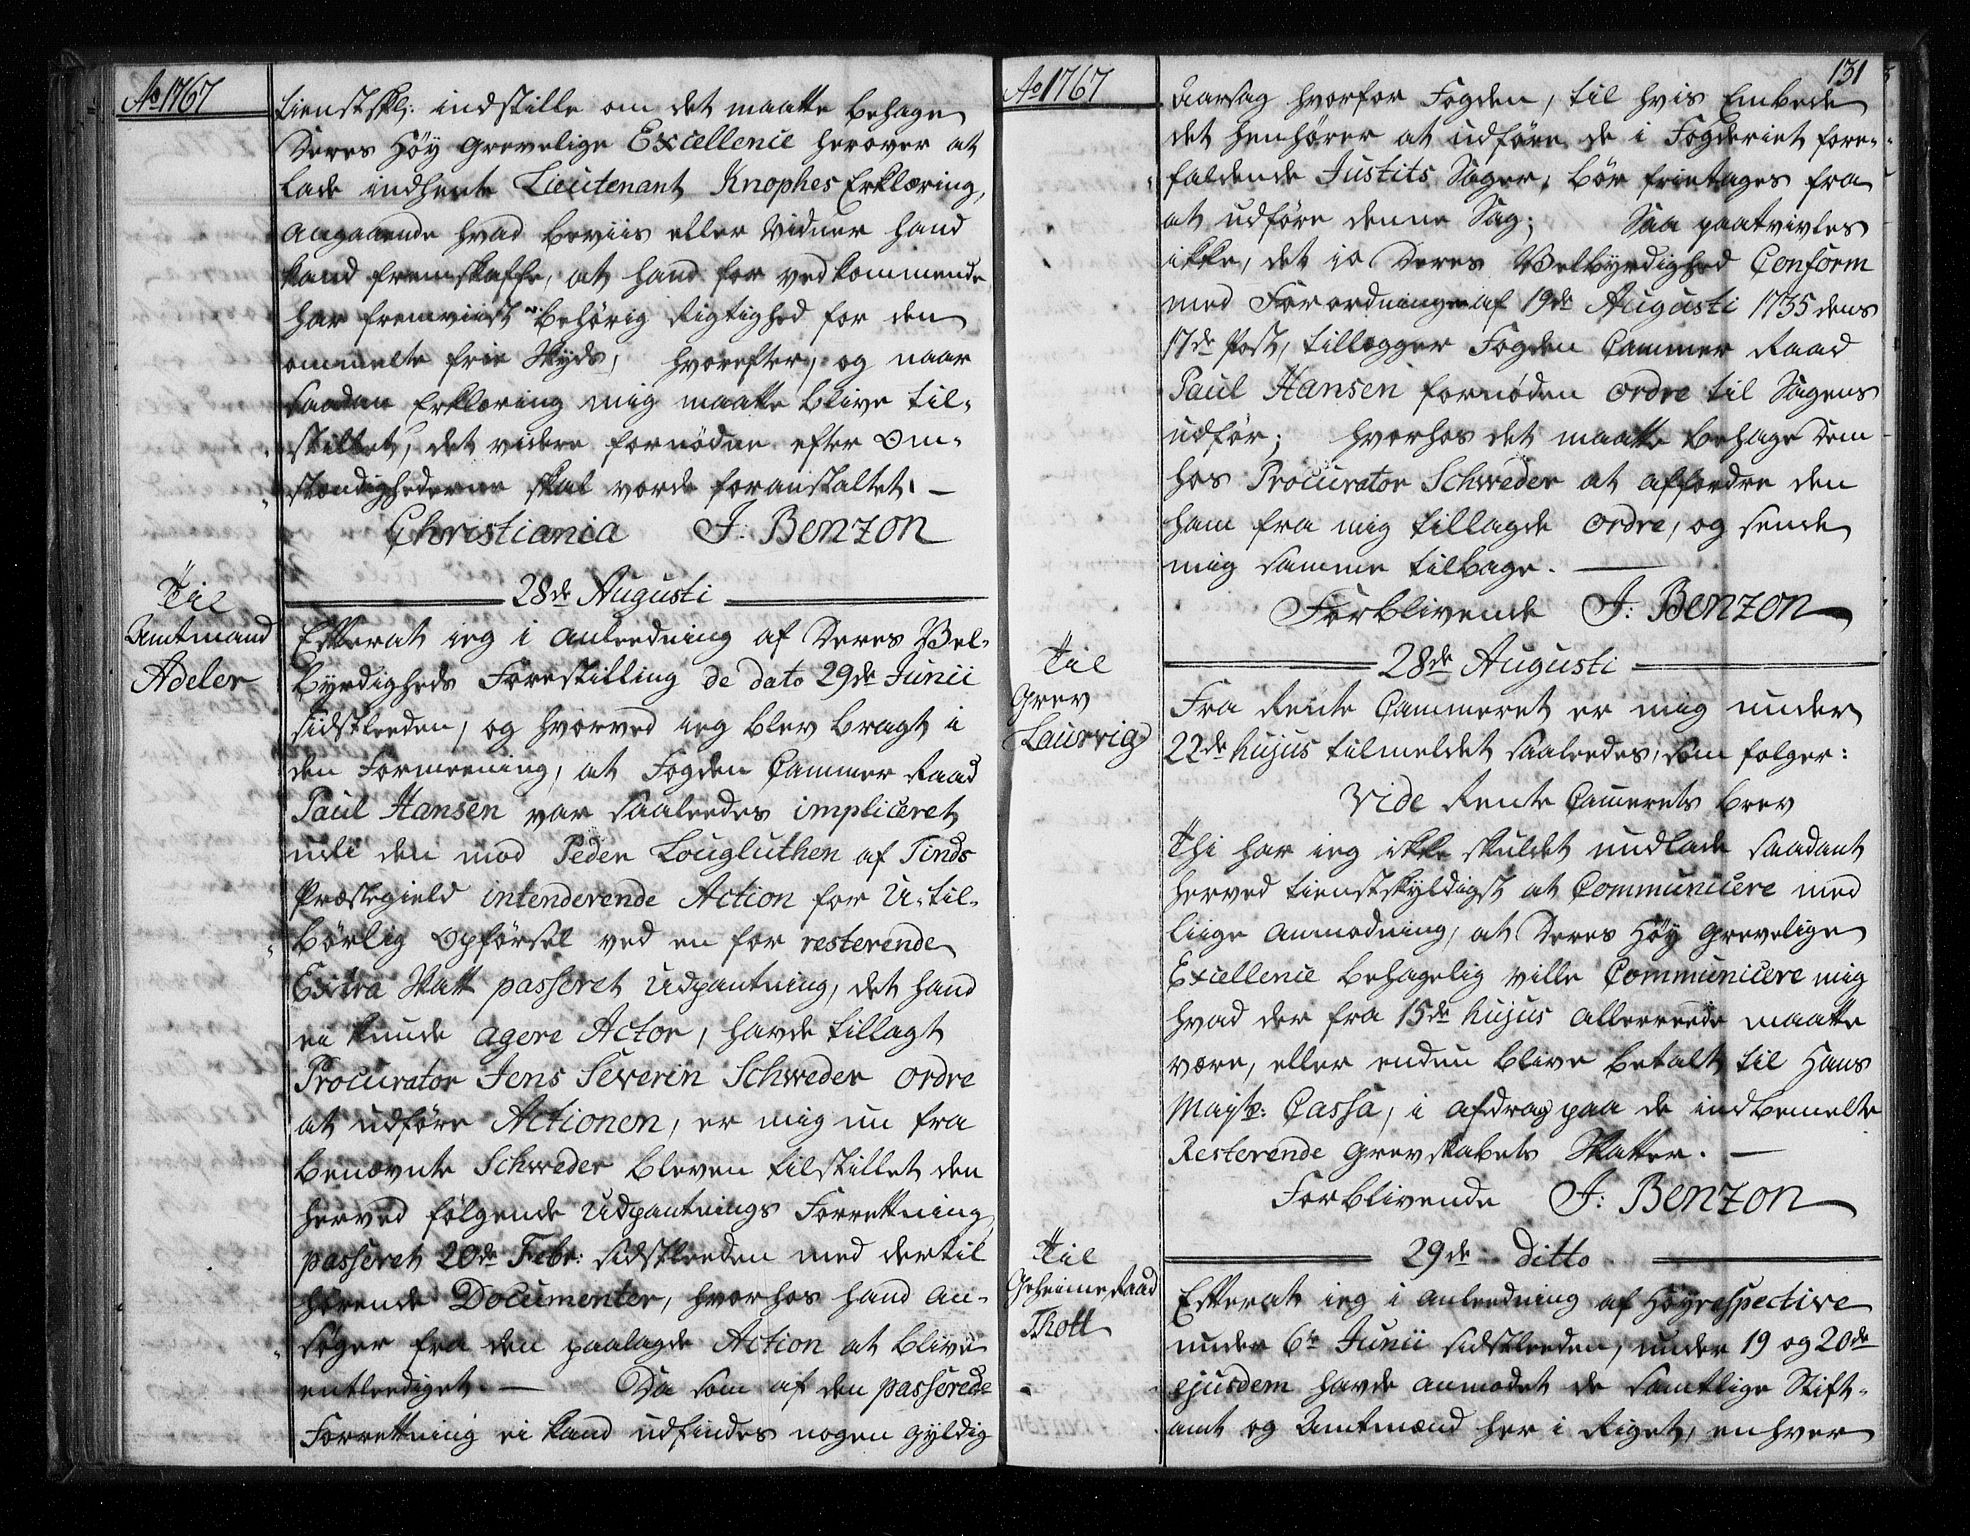 Ao 1767
tienstskl: indstille om det maatte behage
Deres Höy Grevelige Excellence herover at
lade indhente Lieutenant Knophes Erklæring,
angaaende hvad beviis eller Vidner hand
kand fremskaffe, at hand for vedkommende
har fremviist behörig Rigtighed for den
ommelte frie Skyds, hvorefter, og naar
saadan Erklæring mig maatte blive til-
stillet, det videre fornödne efter om-
stændighederne skal vorde foranstaltet. —
Christiania J: Benzon
28de Augusti
Til
Amtmand
Adeler
Efterat ieg i anleedning af Deres Vel-
Byrdigheds Forestilling de dato 29de Junii
sidstleeden, og hvorved ieg blev bragt i
den Formeening, at Fogden Cammer Raad
Paul Hansen var saaleedes impliceret
udi den mod Peder Lougluthen af Tinds
Præstegield intenderende Action for U-til-
börlig Opförsel ved en for resterende
Extra Skatt passeret Udpantning, det hand
ei kunde agere Actor, havde tillagt
Procurator Jens Severin Schweder Ordre
at udföre Actionen, er mig nu fra
benævnte Schweder bleven tilstillet den
herved fölgende Udpantnings Forrettning
passeret 20de Febr: sidstleeden med dertil
hörende Documenter, hvorhos hand an-
söger fra den paalagde Action at blive
entleediget. — Da som af den passerede
Forrettning ei kand udfindes nogen gyldig
Ao 1767
131
Aarsag hvorfor Fogden, til hvis Embede
det henhörer at udföre de i Fogderiet fore-
faldende Justits Sager, bör frietages fra
at udföre denne Sag; Saa paatvivles
ikke, det io Deres Velbyrdighed Conform
med Forordningen af 19de Augusti 1735 dens
17de Post, tillægger Fogden Cammer Raad
Paul Hansen fornøden Ordre til Sagens
udför; hvorhos det maatte behage Dem
hos Procurator Schweder at affordre den
ham fra mig tillagde Ordre, og sende
mig samme tilbage. —
Forblivende J: Benzon
28de Augusti
Til
Grev
Laurvig
Fra Rente Cammeret er mig under
22de hujus tilmeldet saaleedes, som folger:
Vide Rente Camerets brev
Thi har ieg ikke skuldet undlade saadant
herved tienstskyldigst at Communicere med
liige Anmodning, at Deres Höy Grevelige
Excellence behagelig ville Communicere mig
hvad der fra 15de hujus allereede maatte
være, eller endnu blive betalt til Hans
Mayts: Cassa, i afdrag paa de indbemelte
Resterende Grevskabets Skatter. —
Forblivende J: Benzon
29de ditto
Til
Geheime Raad
Thott
Efterat ieg i anleedning af Höyrespective
under 6te Junii sidstleeden, under 19 og 20de
ejusdem havde anmodet de samtlige Stift-
amt og Amtmænd her i Riget, enhver